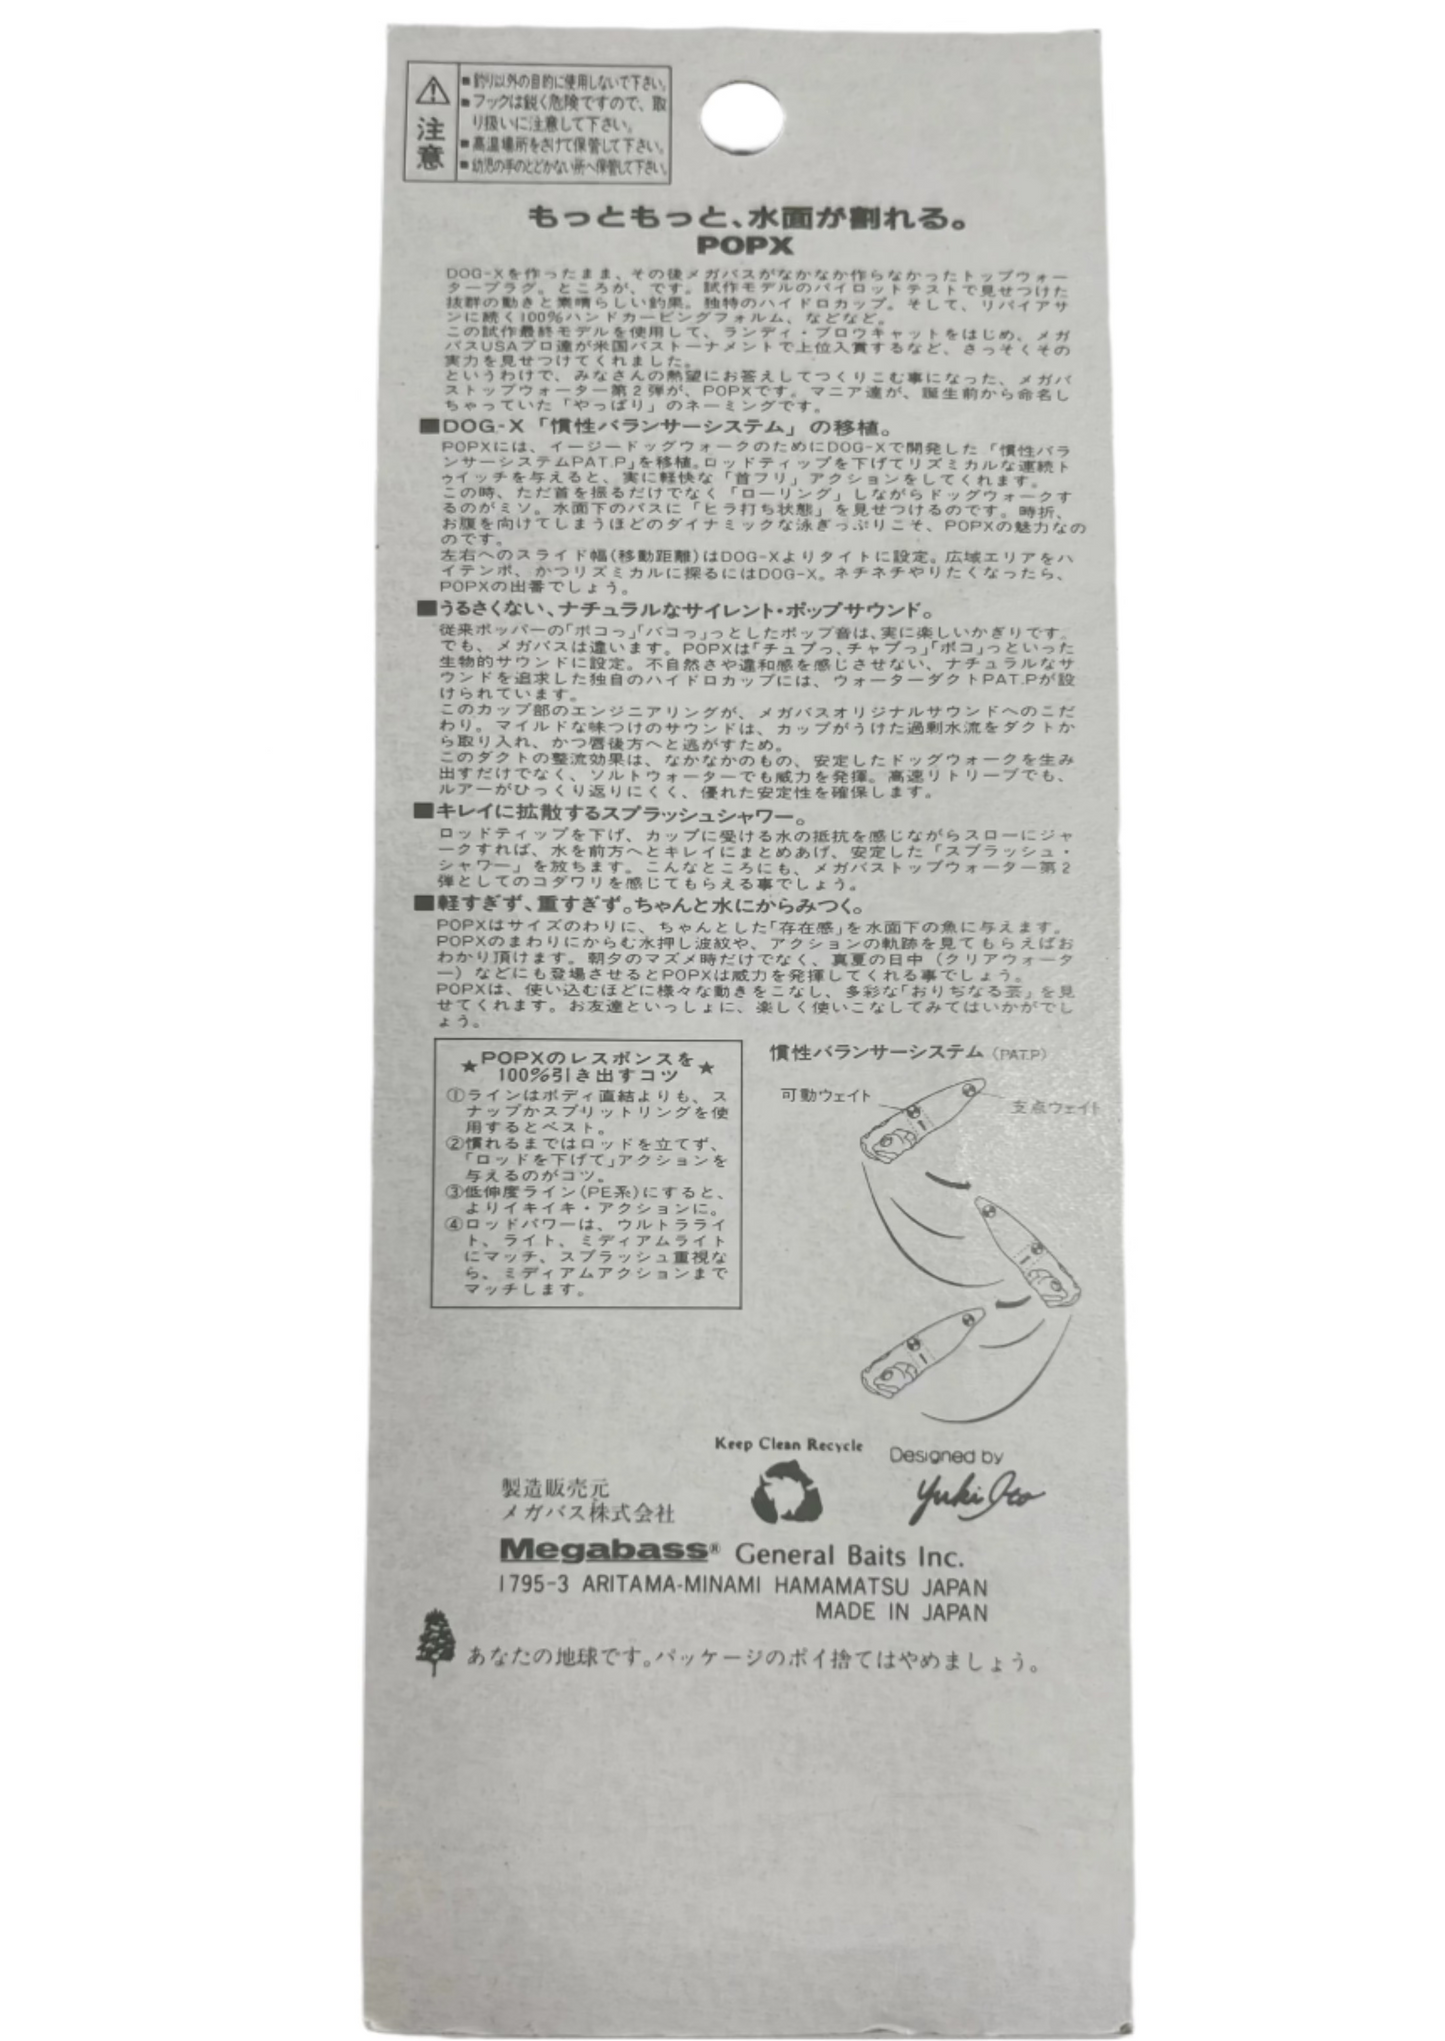 注意
■釣り以外の目的に使用しないで下さい。
■フックは鋭く危険ですので、取
り扱いに注意して下さい。
■高温場所をさけて保管して下さい。
■幼児の手のとどかない所へ保管して下さい。
もっともっと、水面が割れる。
POPX
DOG-Xを作ったまま、その後メガバスがなかなか作らなかったトップウォー
タープラグ。ところが、です。試作モデルのパイロットテストで見せつけた
抜群の動きと素晴らしい釣果。独特のハイドロカップ。そして、リバイアサ
ンに続く100%ハンドカービングフォルム、などなど。
この試作最終モデルを使用して、ランディ・ブロウキャットをはじめ、メガ
バスUSAプロ達が米国バストーナメントで上位入賞するなど、さっそくその
実力を見せつけてくれました。
というわけで、みなさんの熱望にお答えしてつくりこむ事になった、メガバ
ストップウォーター第2弾が、POPXです。マニア達が、誕生前から命名し
ちゃっていた「やっぱり」のネーミングです。
■DOG-X「慣性バランサーシステム」の移植。
POPXには、イージードッグウォークのためにDOG-Xで開発した「慣性バラ
ンサーシステムPAT.P」を移植。ロッドティップを下げてリズミカルな連続ト
ゥイッチを与えると、実に軽快な「首フリ」アクションをしてくれます。
この時、ただ首を振るだけでなく「ローリング」しながらドッグウォークす
るのがミソ。水面下のバスに「ヒラ打ち状態」を見せつけるのです。時折、
お腹を向けてしまうほどのダイナミックな泳ぎっぷりこそ、POPXの魅力なの
のです。
左右へのスライド幅(移動距離)はDOG-Xよりタイトに設定。広域エリアをハ
イテンポ、かつリズミカルに探るにはDOG-X。ネチネチやりたくなったら、
POPXの出番でしょう。
■うるさくない、ナチュラルなサイレント・ポップサウンド。
従来ポッパーの「ポコっ」「バコっ」っとしたポップ音は、実に楽しいかぎりです。
でも、メガバスは違います。POPXは「チュプっ、チャプっ」「ポコ」っといった
生物的サウンドに設定。不自然さや違和感を感じさせない、ナチュラルなサ
ウンドを追求した独自のハイドロカップには、ウォーターダクトPAT.Pが設
けられています。
このカップ部のエンジニアリングが、メガバスオリジナルサウンドへのこだ
わり。マイルドな味つけのサウンドは、カップがうけた過剰水流をダクトか
ら取り入れ、かつ唇後方へと逃がすため。
このダクトの整流効果は、なかなかのもの、安定したドッグウォークを生み
出すだけでなく、ソルトウォーターでも威力を発揮。高速リトリーブでも、
ルアーがひっくり返りにくく、優れた安定性を確保します。
■キレイに拡散するスプラッシュシャワー。
ロッドティップを下げ、カップに受ける水の抵抗を感じながらスローにジャ
ークすれば、水を前方へとキレイにまとめあげ、安定した「スプラッシュ・
シャワー」を放ちます。こんなところにも、メガバストップウォーター第2
弾としてのコダワリを感じてもらえる事でしょう。
■軽すぎず、重すぎず。ちゃんと水にからみつく。
POPXはサイズのわりに、ちゃんとした「存在感」を水面下の魚に与えます。
POPXのまわりにからむ水押し波紋や、アクションの軌跡を見てもらえばお
わかり頂けます。朝夕のマズメ時だけでなく、真夏の日中（クリアウォータ
ー）などにも登場させるとPOPXは威力を発揮してくれる事でしょう。
POPXは、使い込むほどに様々な動きをこなし、多彩な「おりぢなる芸」を見
せてくれます。お友達といっしょに、楽しく使いこなしてみてはいかがでし
ょう。
★POPXのレスポンスを★
100%引き出すコツ
①ラインはボディ直結よりも、ス
ナップかスプリットリングを使
用するとベスト。
②慣れるまではロッドを立てず、
「ロッドを下げて」アクションを
与えるのがコツ。
③低伸度ライン(PE系)にすると、
よりイキイキ・アクションに。
④ロッドパワーは、ウルトラライ
ト、ライト、ミディアムライト
にマッチ、スプラッシュ重視な
ら、ミディアムアクションまで
マッチします。
慣性バランサーシステム（PAT.P）
可動ウェイト
支点ウェイト
Keep Clean Recycle
Designed by
Yuki Ito
製造販売元
メガバス株式会社
Megabass® General Baits Inc.
1795-3 ARITAMA-MINAMI HAMAMATSU JAPAN
MADE IN JAPAN
あなたの地球です。パッケージのポイ捨てはやめましょう。